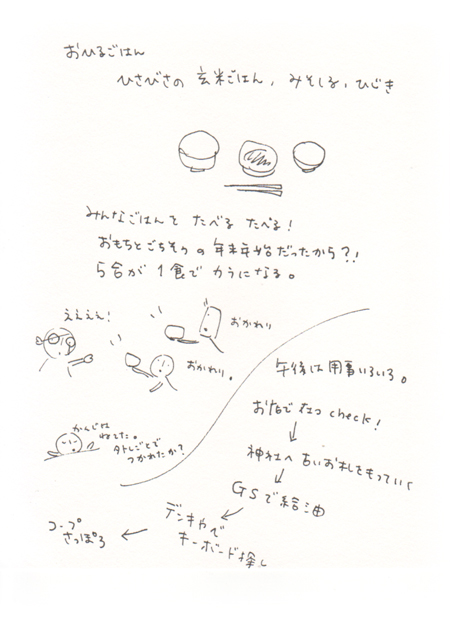 おひるごはん
ひさびさの 玄米ごはん, みそしる, ひじき
みんなごはんを たべる たべる!
おもちとごちそうの 年末年始だったから?!
5合が 1食で カラになる。
えええぇ!
おかわり
おかわり。
午後は 用事いろいろ。
かんじは
ねてた。
外しごとで
つかれたか?
お店で check!
神社へ 古いお札をもっていく
GSで給油
デンキやで
キーボード探し
コープ
さっぽろ